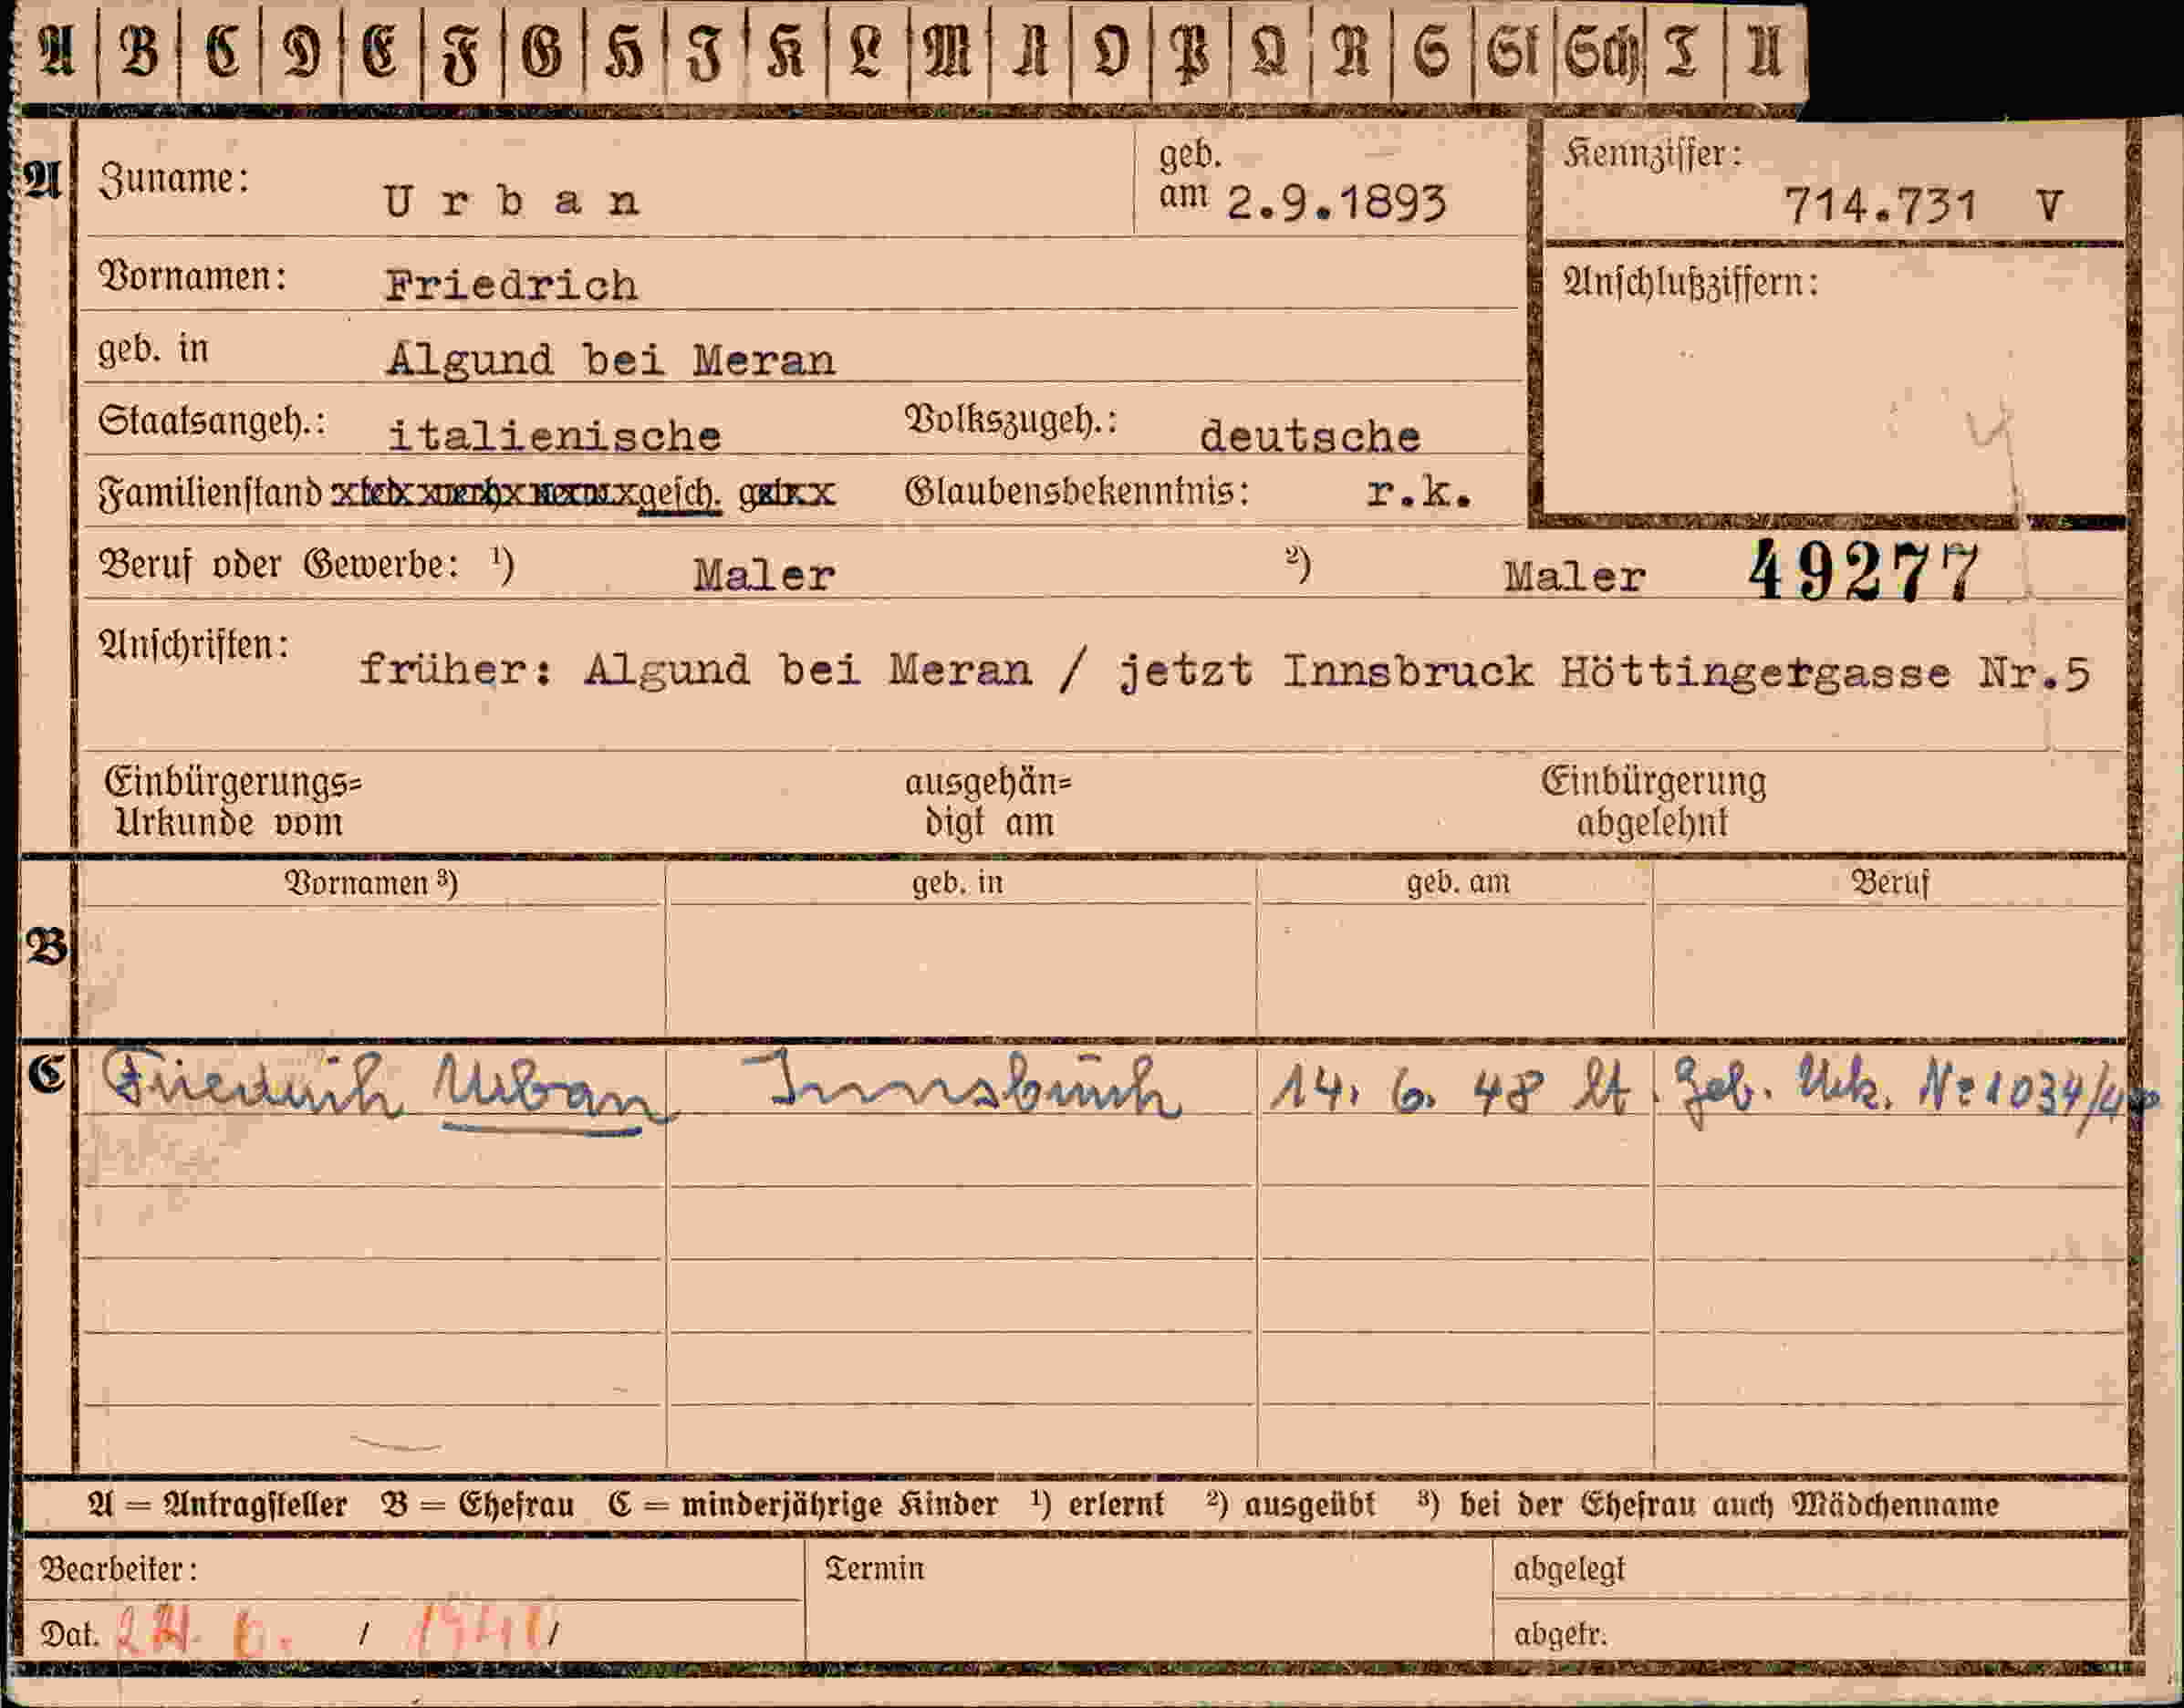 A B C D E F G H J K L M N O P Q R S St Sch T U
A Zuname: Urban geb. am 2.9.1893 Kennziffer: 714.731 V
Vornamen: Friedrich Anschlußziffern:
geb. in Algund bei Meran
Staatsangeh.: italienische Volkszugeh.: deutsche
Familienstand gesch. Glaubensbekenntnis: r.k.
Beruf oder Gewerbe: ¹) Maler ²) Maler 49277
Anschriften: früher: Algund bei Meran / jetzt Innsbruck Höttingergasse Nr.5
Einbürgerungs= ausgehän= Einbürgerung
Urkunde vom digt am abgelehnt
Vornamen ³) geb. in geb. am Beruf
B
C Friedrich Urban Innsbruck 14. 6. 48 lt. Geb. Urk. No 1034/48
A = Antragsteller B = Ehefrau C = minderjährige Kinder ¹) erlernt ²) ausgeübt ³) bei der Ehefrau auch Mädchenname
Bearbeiter: Termin abgelegt
Dat. / / abgetr.